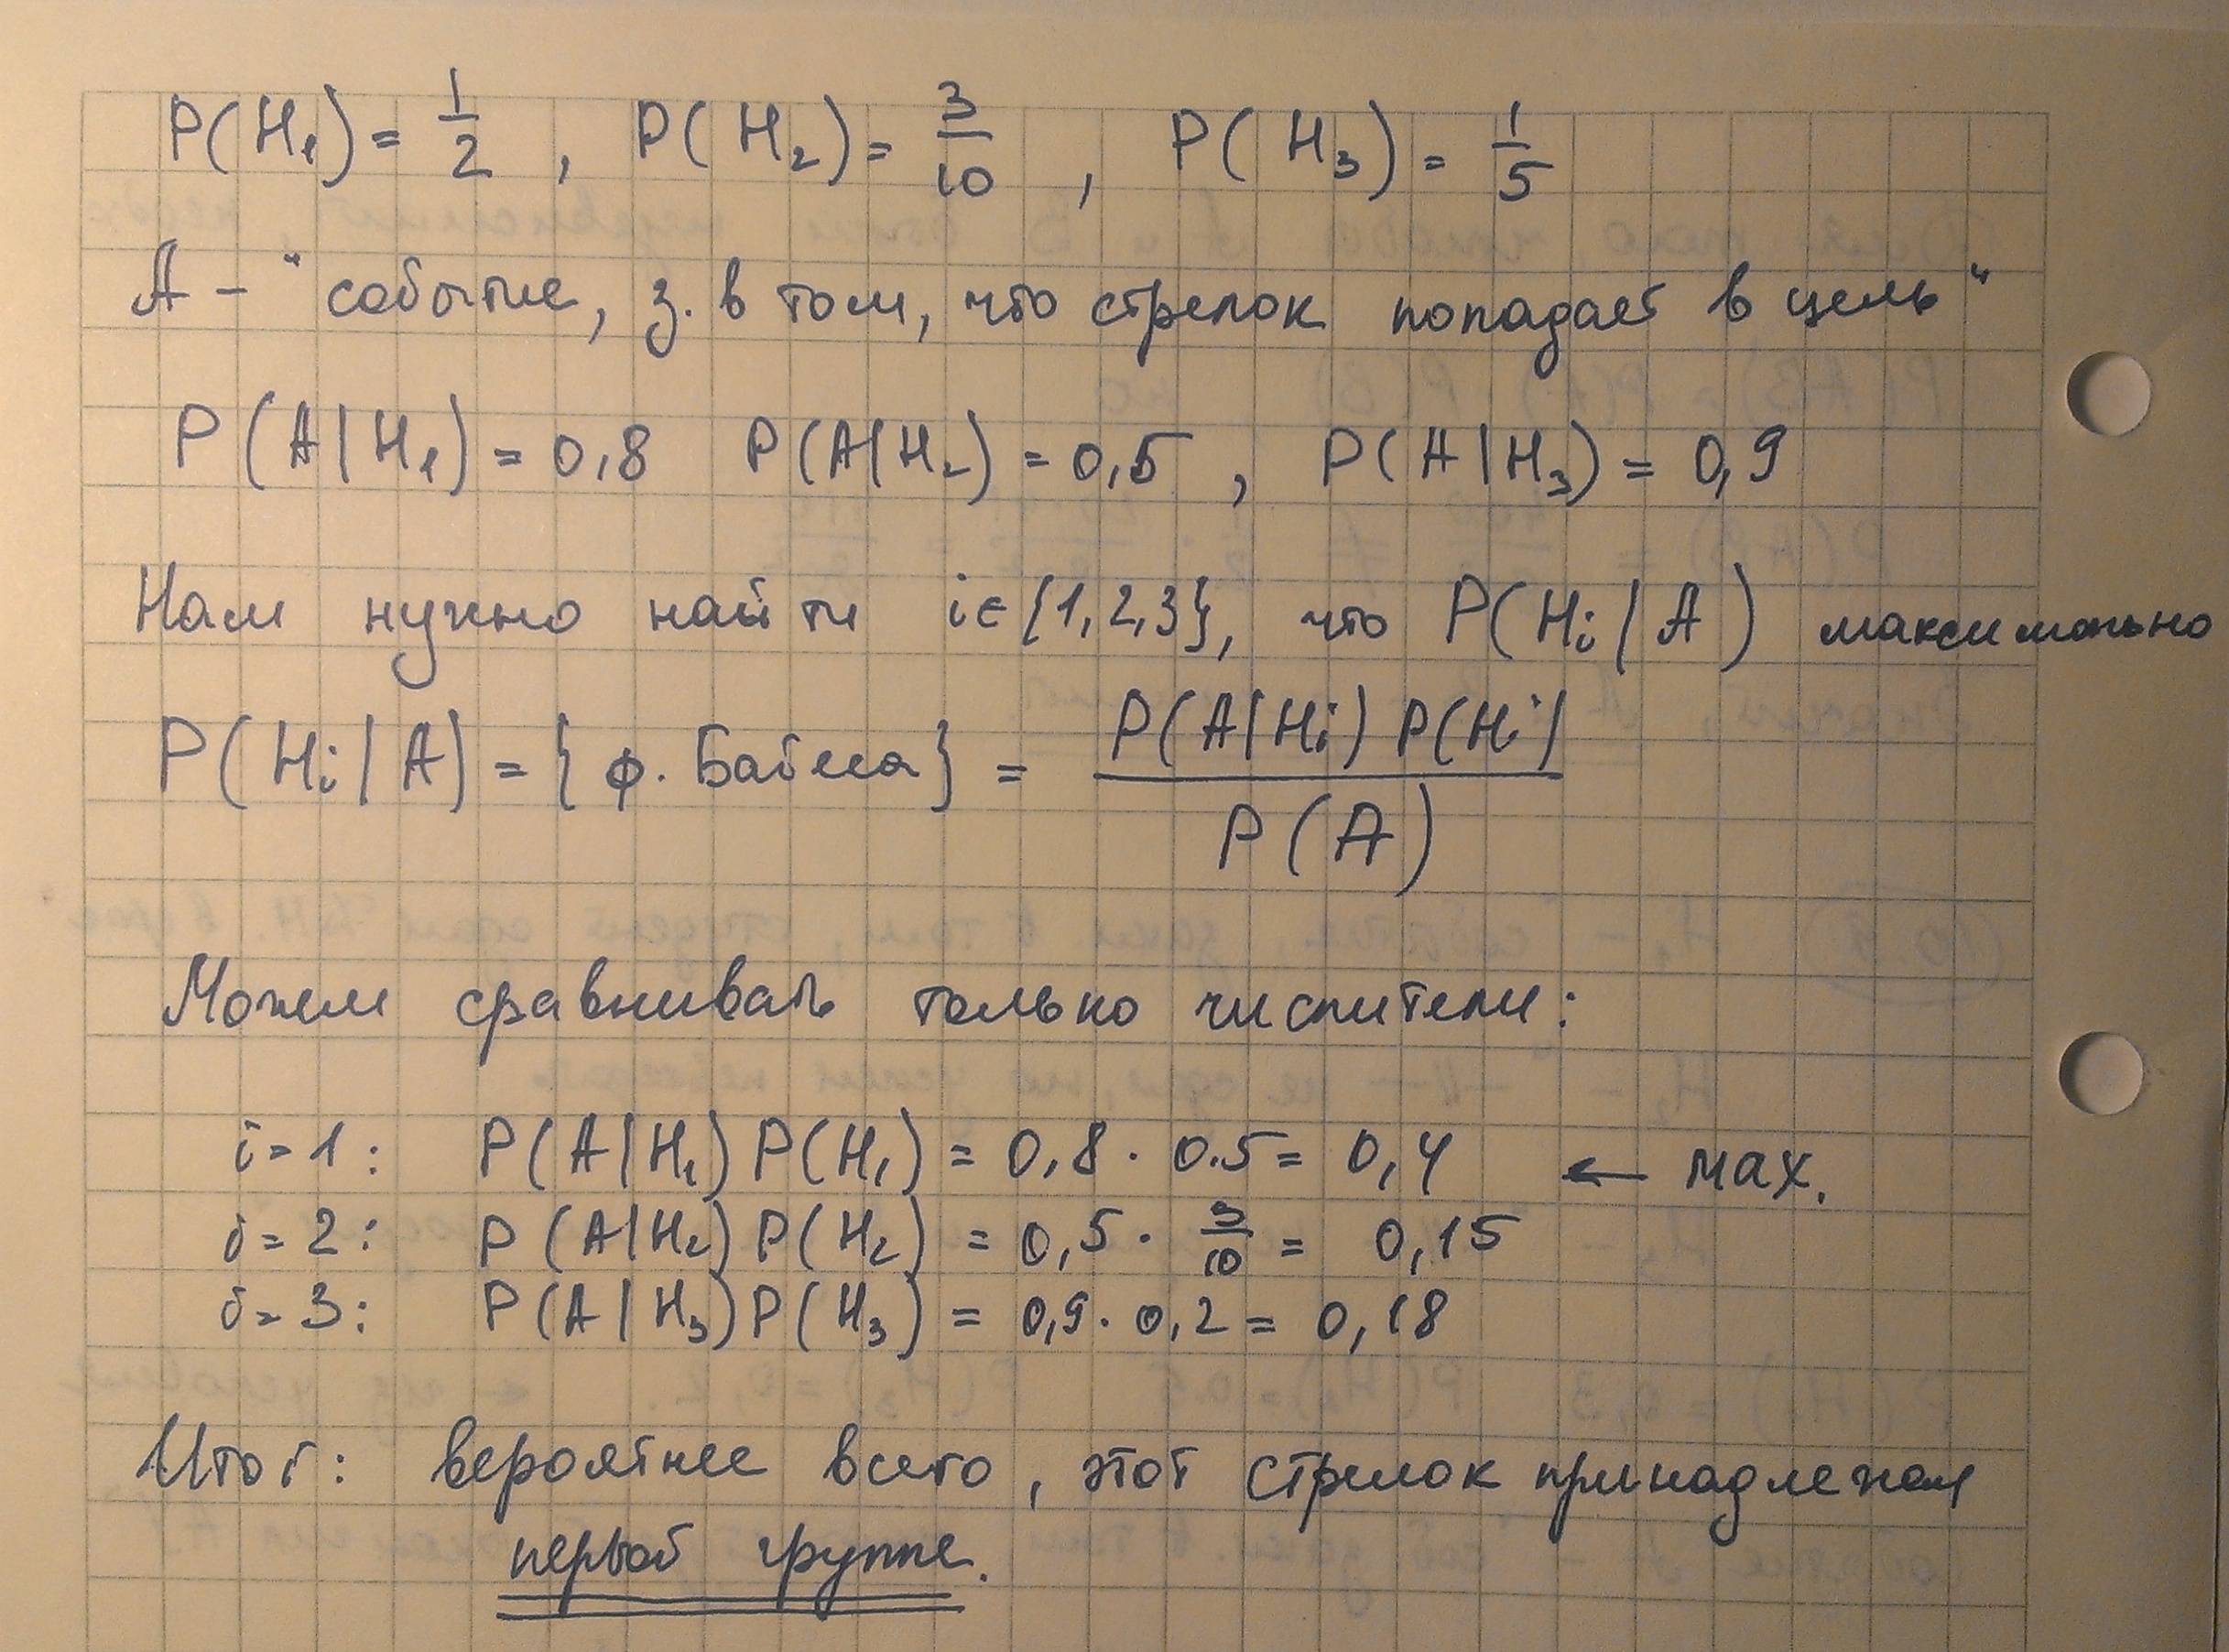 P(H₁) = 1/2 , P(H₂) = 3/10 , P(H₃) = 1/5
A - "событие, з. в том, что стрелок попадает в цель"
P(A|H₁) = 0,8 P(A|H₂) = 0,5 , P(A|H₃) = 0,9
Нам нужно найти i ∈ {1,2,3}, что P(Hi|A) максимально
P(Hi|A) = {ф. Байеса} = P(A|Hi) P(Hi) / P(A)
Можем сравнивать только числители:
i=1: P(A|H₁) P(H₁) = 0,8 · 0.5 = 0,4 ← max.
i=2: P(A|H₂) P(H₂) = 0,5 · 3/10 = 0,15
i=3: P(A|H₃) P(H₃) = 0,9 · 0,2 = 0,18
Итог: вероятнее всего, этот стрелок принадлежал
первой группе.